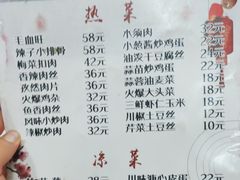 热 菜
毛血旺 58元
辣子小排 58元
梅菜扣肉 42元
香辣肉丝 36元
孜然肉片 36元
火爆鸡杂 32元
鱼香肉丝 36元
风味小炒肉 36元
辣椒炒肉 32元
水须肉
小葱酱炒鸡蛋 22元
油泼干豆腐丝
蒜苗炒鸡蛋
蒜蓉油麦菜 18元
火爆大头菜 18元
三鲜虾仁玉米 18元
川椒土豆丝 22元
芹菜土豆丝 10元
凉 菜
川味溏心皮蛋 22元